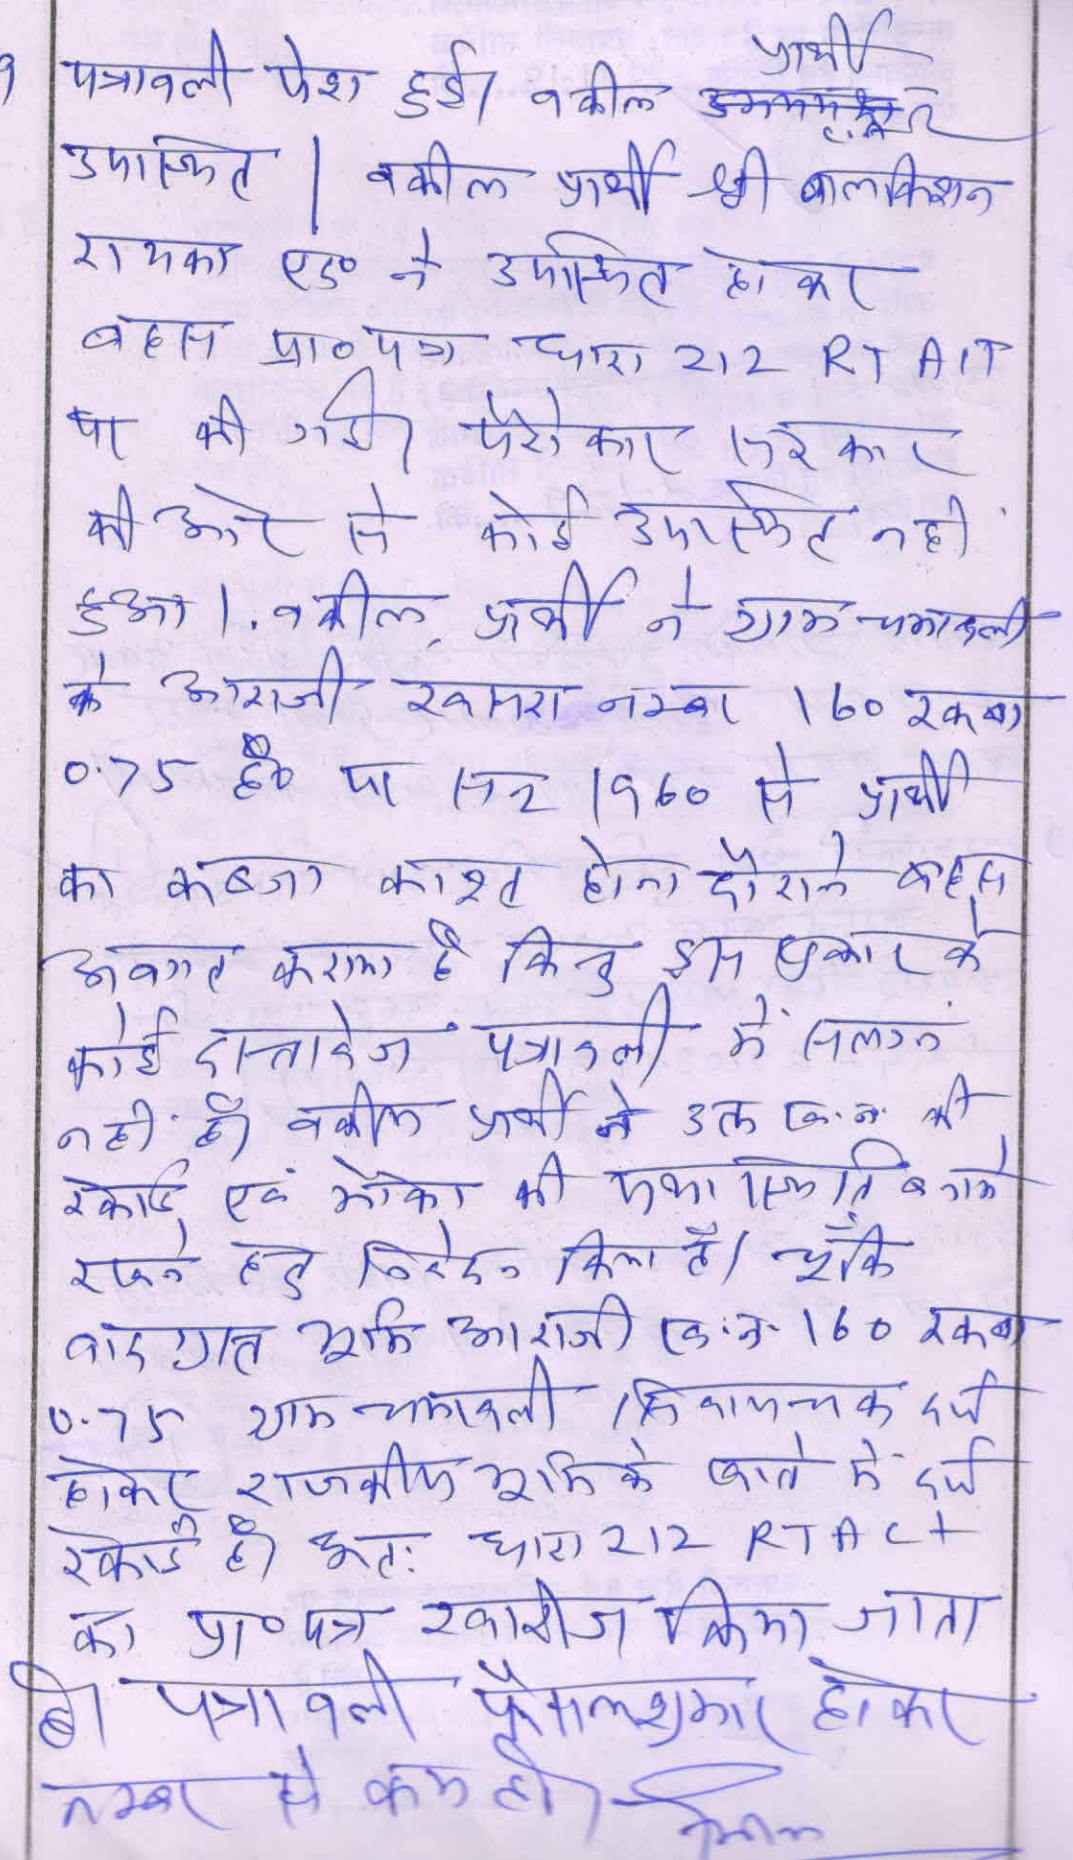 प्रार्थी
पत्रावली पेश हुई। वकील
उपस्थित। वकील प्रार्थी श्री बालकिशन
रायका एड० ने उपस्थित होकर
बहस प्रा०पत्र धारा 212 RT ACT
पर की गई। पैरोकार सरकार
की ओर से कोई उपस्थित नहीं
हुआ। वकील प्रार्थी ने ग्राम
के आराजी खसरा नम्बर 160 रकबा
0.75 है० पर सन 1960 से प्रार्थी
का कब्जा काश्त होना दौराने बहस
अवगत कराया है किन्तु इस प्रकार के
कोई दस्तावेज पत्रावली में सलग्न
नहीं है। वकील प्रार्थी ने उक्त ख.न. की
रेकार्ड एवं मौका की यथा स्थिति बनाये
रखने हेतु निवेदन किया है। चूंकि
वादग्रस्त भूमि आराजी ख.न. 160 रकबा
0.75 ग्राम सिवायचक दर्ज
होकर राजकीय भूमि के खाते में दर्ज
रेकार्ड है। अतः धारा 212 RT ACT
का प्रा०पत्र खारीज किया जाता
है। पत्रावली फैसलशुमार होकर
नम्बर से कम हो।